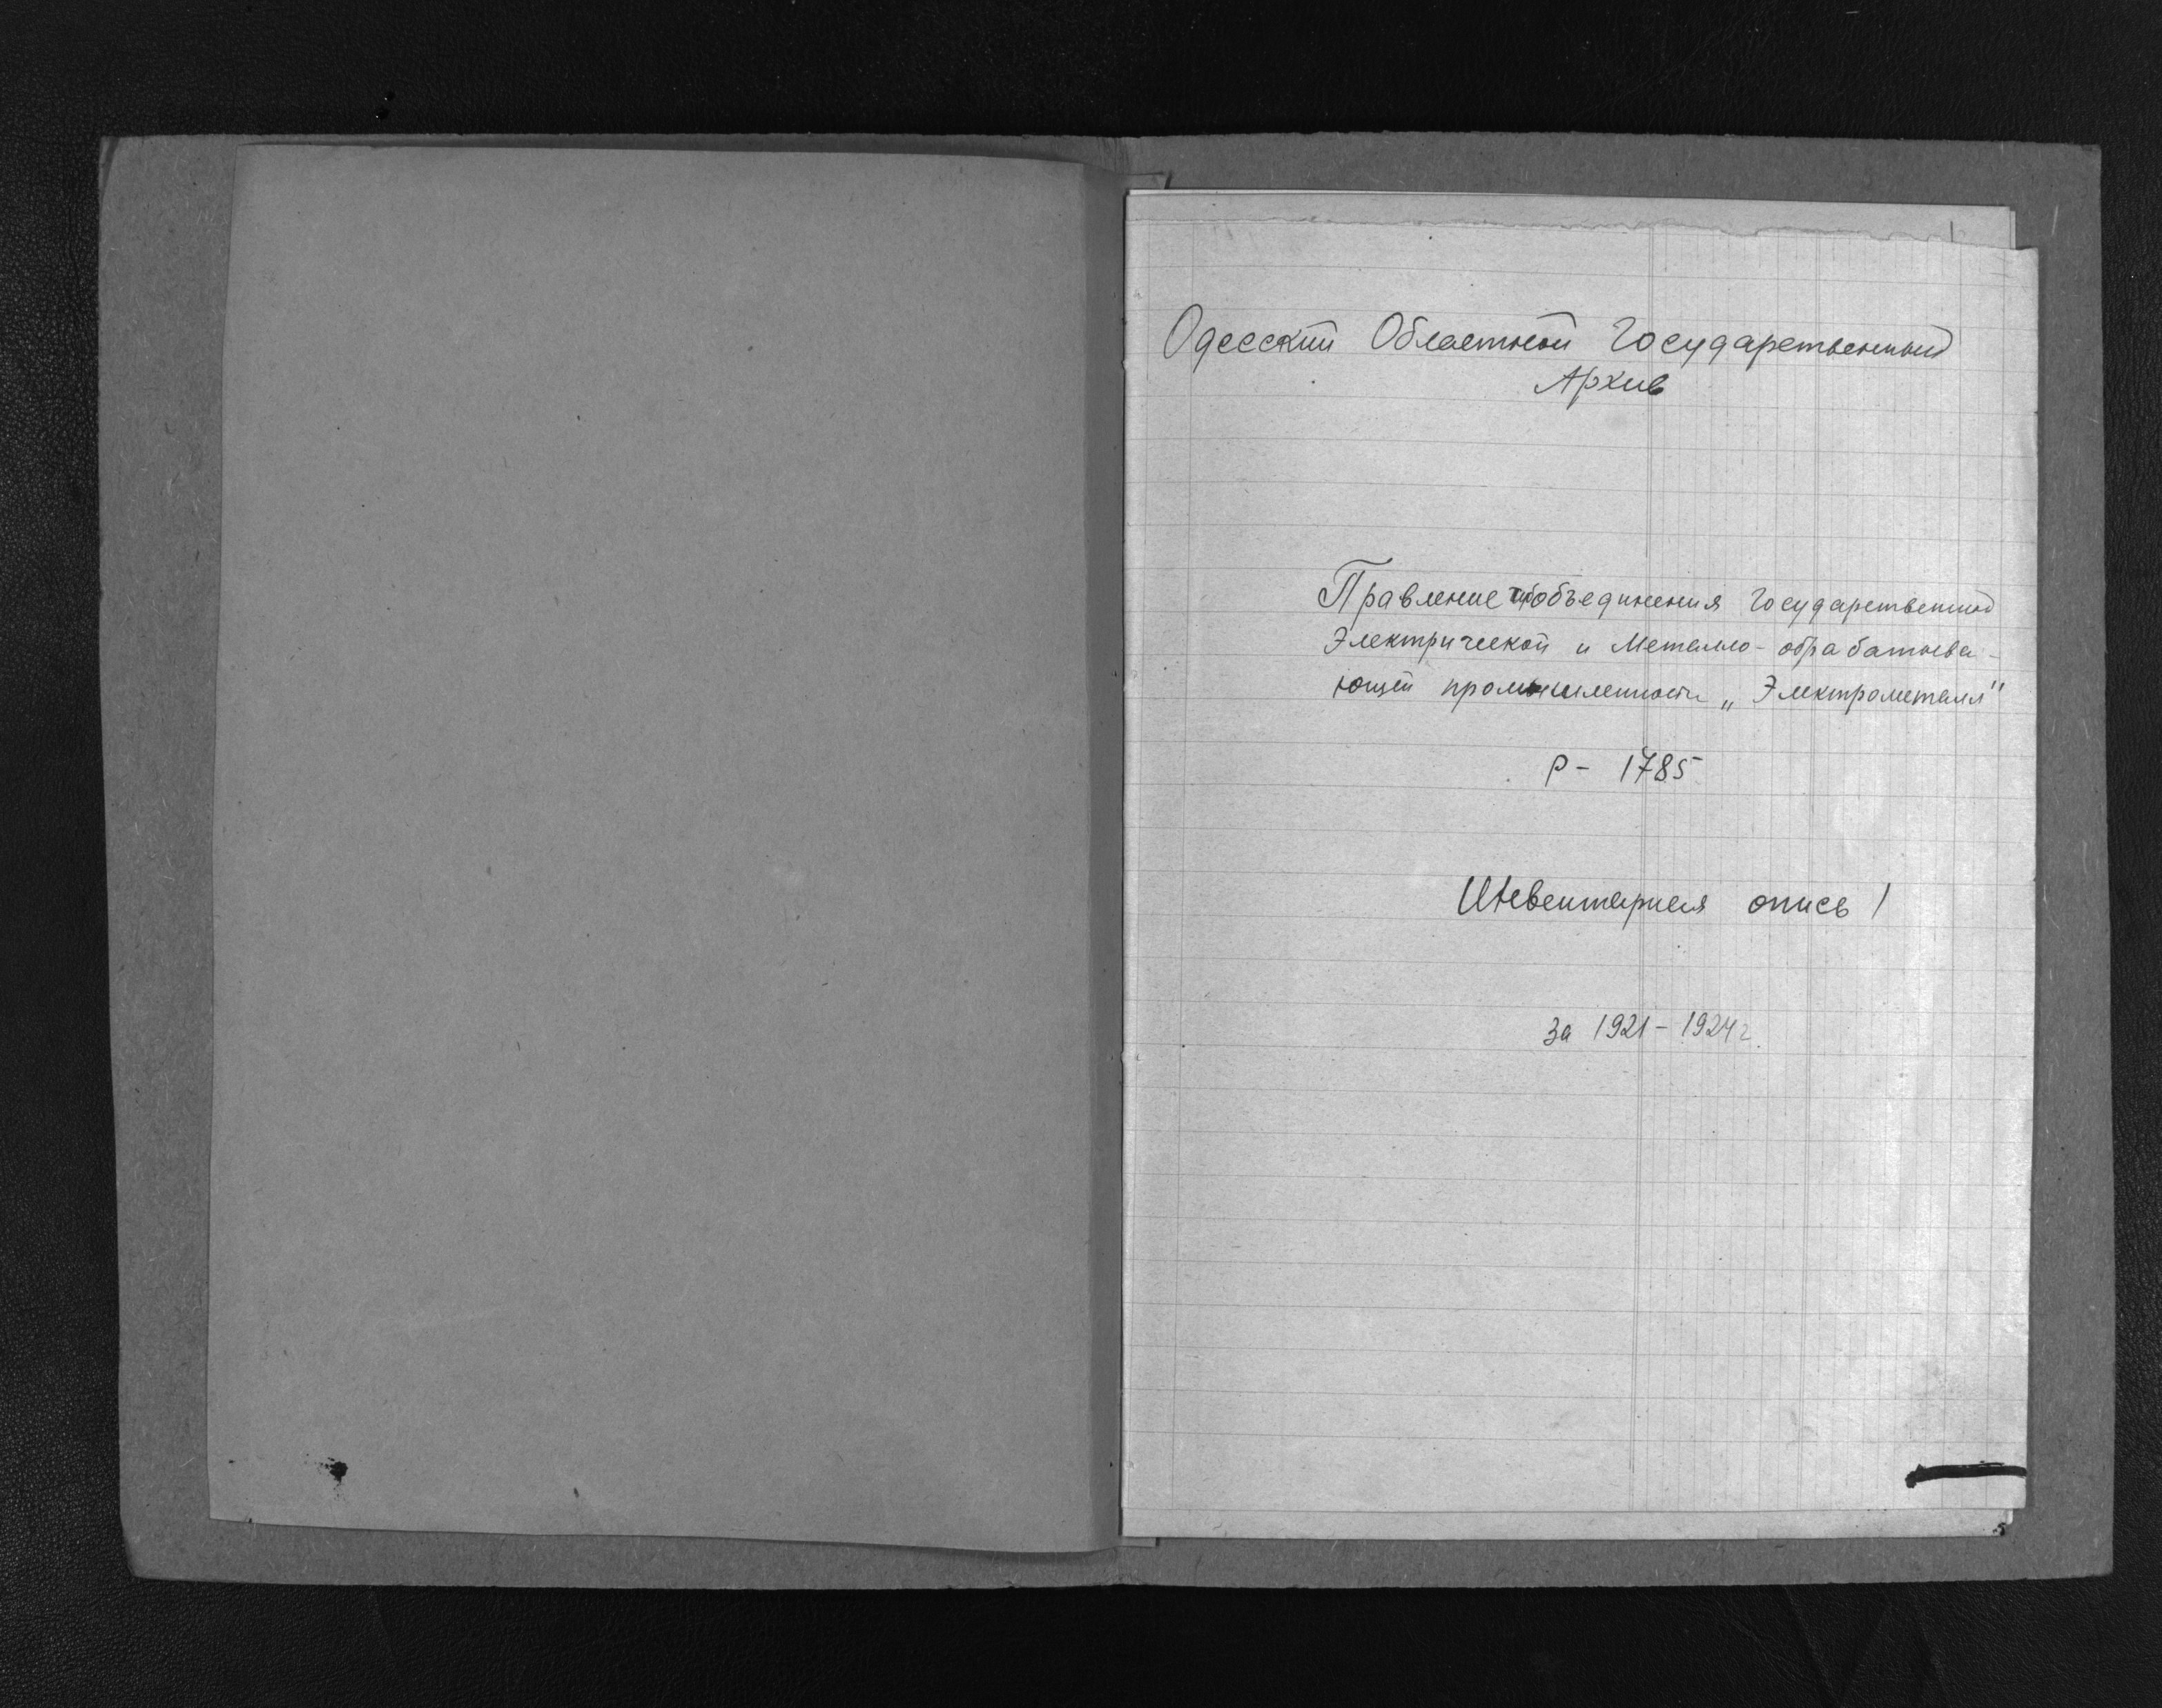 Одесский Областной Государственный
Архив
Правление объединения Государственной
Электрической и Металло-обрабатыва-
ющей промышленности „Электрометалл"
Р - 1785
Инвентарная опись 1
за 1921 - 1924 г.